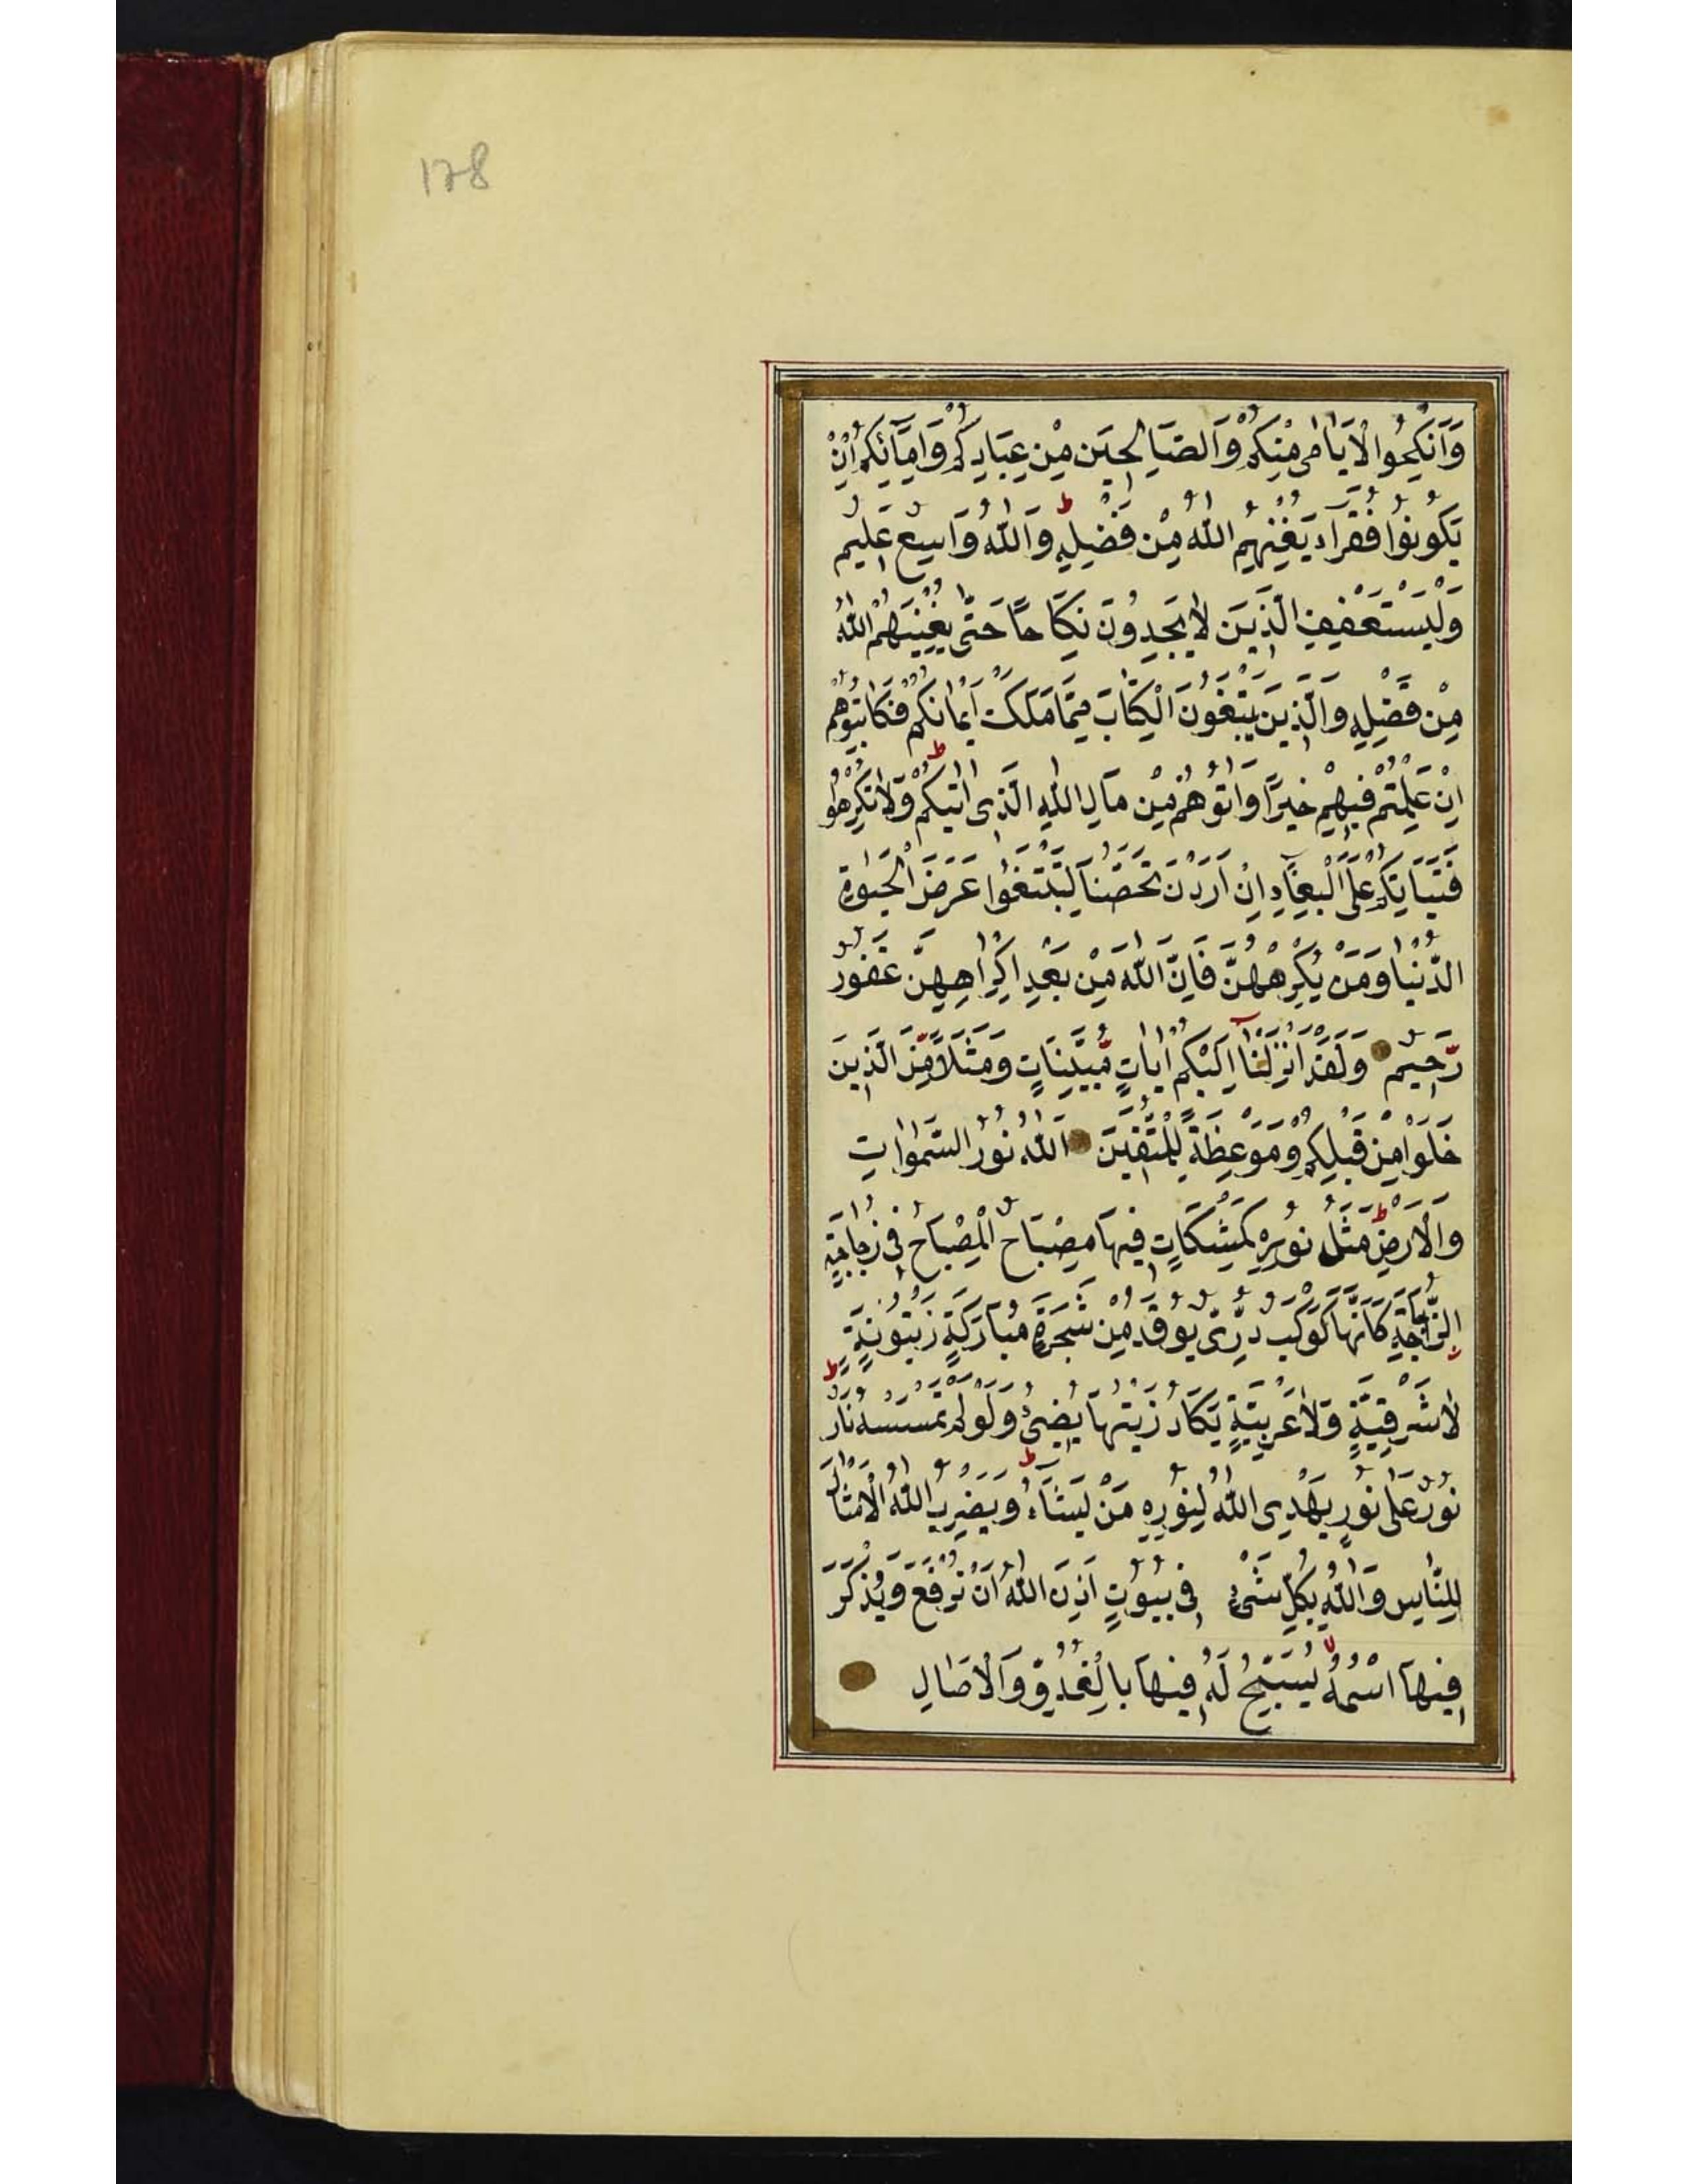 178
وَاَنْكِحُوا الْاَيَامٰى مِنْكُمْ وَالصَّالِحِينَ مِنْ عِبَادِكُمْ وَاِمَآئِكُمْ اِنْ
يَكُونُوا فُقَرَاءَ يُغْنِهِمُ اللّٰهُ مِنْ فَضْلِهِ ط وَاللّٰهُ وَاسِعٌ عَلِيمٌ
وَلْيَسْتَعْفِفِ الَّذِينَ لَا يَجِدُونَ نِكَاحًا حَتّٰى يُغْنِيَهُمُ اللّٰهُ
مِنْ فَضْلِهِ وَالَّذِينَ يَبْتَغُونَ الْكِتَابَ مِمَّا مَلَكَتْ اَيْمَانُكُمْ فَكَاتِبُوهُمْ
اِنْ عَلِمْتُمْ فِيهِمْ خَيْرًا وَاٰتُوهُمْ مِنْ مَالِ اللّٰهِ الَّذِى اٰتٰيكُمْ ط وَلَا تُكْرِهُوا
فَتَيَاتِكُمْ عَلَى الْبِغَاءِ اِنْ اَرَدْنَ تَحَصُّنًا لِتَبْتَغُوا عَرَضَ الْحَيٰوةِ
الدُّنْيَا وَمَنْ يُكْرِهْهُنَّ فَاِنَّ اللّٰهَ مِنْ بَعْدِ اِكْرَاهِهِنَّ غَفُورٌ
رَّحِيمٌ وَلَقَدْ اَنْزَلْنَآ اِلَيْكُمْ اٰيَاتٍ مُّبَيِّنَاتٍ وَمَثَلًا مِّنَ الَّذِينَ
خَلَوْا مِنْ قَبْلِكُمْ وَمَوْعِظَةً لِلْمُتَّقِينَ اَللّٰهُ نُورُ السَّمٰوَاتِ
وَالْاَرْضِ ط مَثَلُ نُورِهِ كَمِشْكَاتٍ فِيهَا مِصْبَاحٌ الْمِصْبَاحُ فِى زُجَاجَةٍ
اَلزُّجَاجَةُ كَاَنَّهَا كَوْكَبٌ دُرِّىٌّ يُوقَدُ مِنْ شَجَرَةٍ مُبَارَكَةٍ زَيْتُونَةٍ
لَا شَرْقِيَّةٍ وَلَا غَرْبِيَّةٍ يَكَادُ زَيْتُهَا يُضِىءُ وَلَوْ لَمْ تَمْسَسْهُ نَارٌ ط
نُورٌ عَلٰى نُورٍ يَهْدِى اللّٰهُ لِنُورِهِ مَنْ يَشَآءُ ط وَيَضْرِبُ اللّٰهُ الْاَمْثَالَ
لِلنَّاسِ وَاللّٰهُ بِكُلِّ شَىْءٍ فِى بُيُوتٍ اَذِنَ اللّٰهُ اَنْ تُرْفَعَ وَيُذْكَرَ
فِيهَا اسْمُهُ يُسَبِّحُ لَهُ فِيهَا بِالْغُدُوِّ وَالْاٰصَالِ